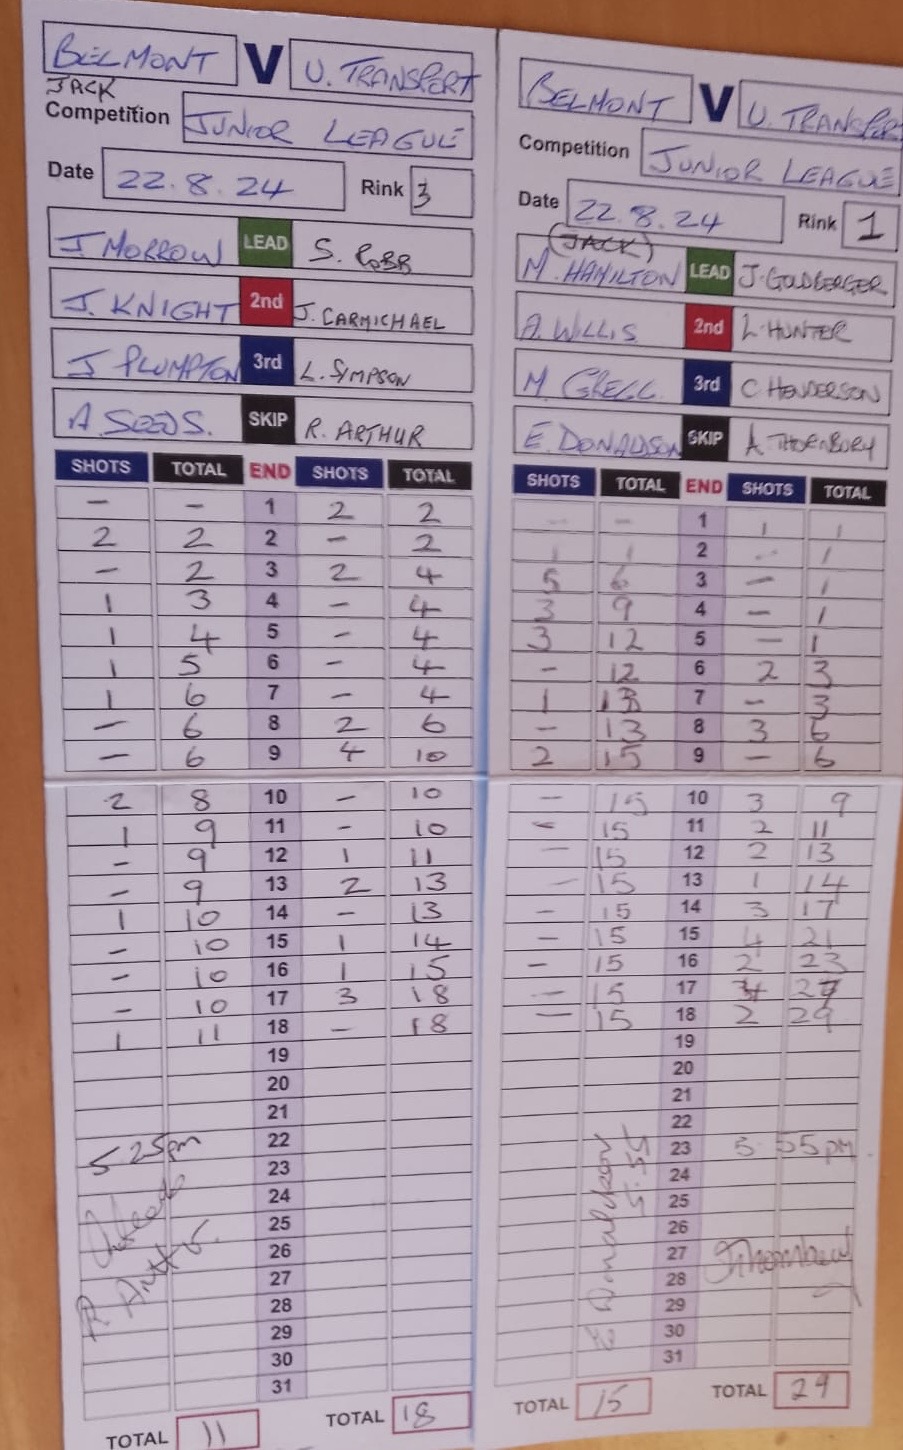 BELMONT V U. TRANSPORT
JACK
Competition JUNIOR LEAGUE
Date 22.8.24 Rink 3
J MORROW LEAD S. ROBB
J. KNIGHT 2nd J. CARMICHAEL
J PLUMPTON 3rd L. SIMPSON
A SEEDS. SKIP R. ARTHUR
SHOTS TOTAL END SHOTS TOTAL
- - 1 2 2
2 2 2 - 2
- 2 3 2 4
1 3 4 - 4
1 4 5 - 4
1 5 6 - 4
1 6 7 - 4
- 6 8 2 6
- 6 9 4 10
2 8 10 - 10
1 9 11 - 10
- 9 12 1 11
- 9 13 2 13
1 10 14 - 13
- 10 15 1 14
- 10 16 1 15
- 10 17 3 18
1 11 18 - 18
19
20
21
5.25pm 22
23
24
25
26
R. Arthur 27
28
29
30
31
TOTAL 11 TOTAL 18
BELMONT V U. TRANSPOR
Competition JUNIOR LEAGUE
Date 22.8.24 Rink 1
(JACK)
M. HAMILTON LEAD J. GOLDBERGER
A. WILLIS 2nd L. HUNTER
M. GREGG. 3rd C HENDERSON
E. DONALDSON SKIP A. THORNBURY
SHOTS TOTAL END SHOTS TOTAL
- - 1 1 1
1 1 2 - 1
5 6 3 - 1
3 9 4 - 1
3 12 5 - 1
- 12 6 2 3
1 13 7 - 3
- 13 8 3 6
2 15 9 - 6
- 15 10 3 9
- 15 11 2 11
- 15 12 2 13
- 15 13 1 14
- 15 14 3 17
- 15 15 4 21
- 15 16 2 23
- 15 17 4 27
- 15 18 2 29
19
20
21
22
23 5.55pm
24
25
26
27
28
29
30
31
E Donaldson 5.55
TOTAL 15 TOTAL 29